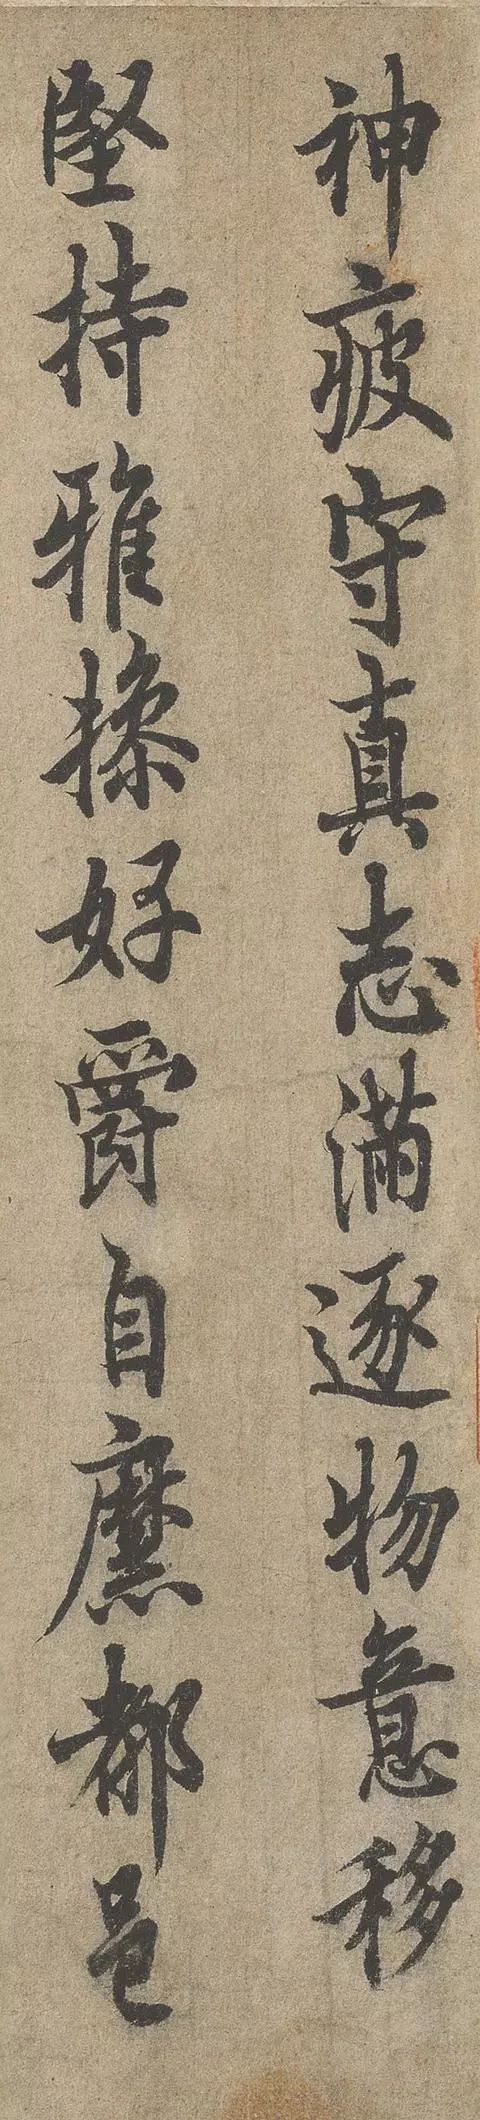 神疲守真志满逐物意移
堅持雅操好爵自縻都邑